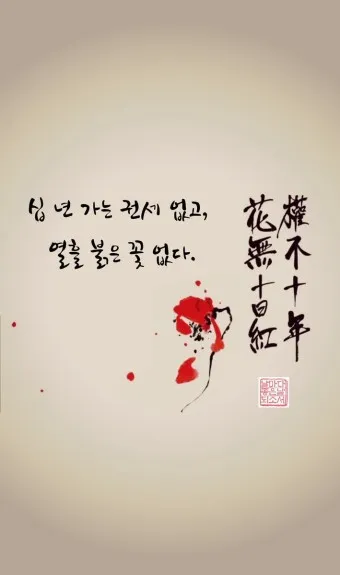 십 년 가는 권세 없고,
열흘 붉은 꽃 없다.
權不十年
花無十日紅